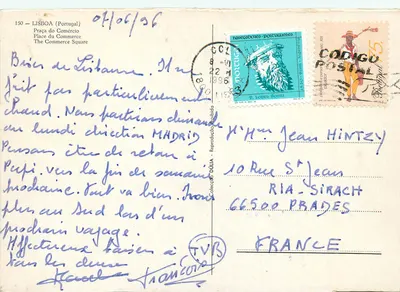 07/06/96
150 - LISBOA (Portugal)
Praça do Comércio
Place du Commerce
The Commerce Square
Bises de Lisbonne. Il ne
fait pas particulièrement
chaud. Nous partirons demain
ou lundi direction MADRID
Pensons être de retour à
vers la fin de semaine
prochaine. Tout va bien. Irons
plus au Sud lors d'un
prochain voyage.
Affectueux baisers à
tous les deux
Françoise
TVB
CÓDIGO
POSTAL
22
1996
M Mme Jean HINTZY
10 Rue St Jean
RIA-SIRACH
66500 PRADES
FRANCE